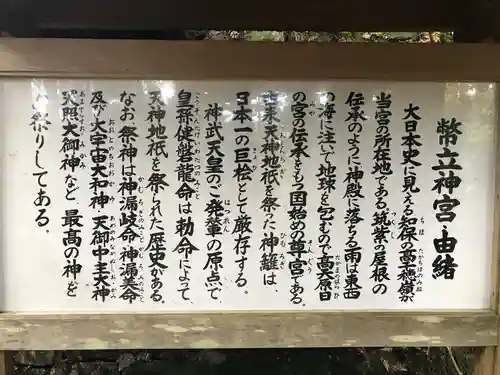 幣立神宮の由緒
大日本史に見える知保の高千穂嶺が
当宮の所在地である。筑紫の屋根の
伝承のように神殿に落ちる雨は東西
の海に注いで地球を包むので高天原日
の宮の伝承をもつ国始めの尊宮である。
古来天神地祇を祭った神籬は、
日本一の巨桧として厳存する。
神武天皇のご発輦の原点で
皇孫健磐龍命は勅命によって、
天神地祇を祭られた歴史がある。
なお、祭神は神漏岐命・神漏美命
及び大宇宙大和神・天御中主大神
天照大御神など、最高の神を
お祭りしてある。